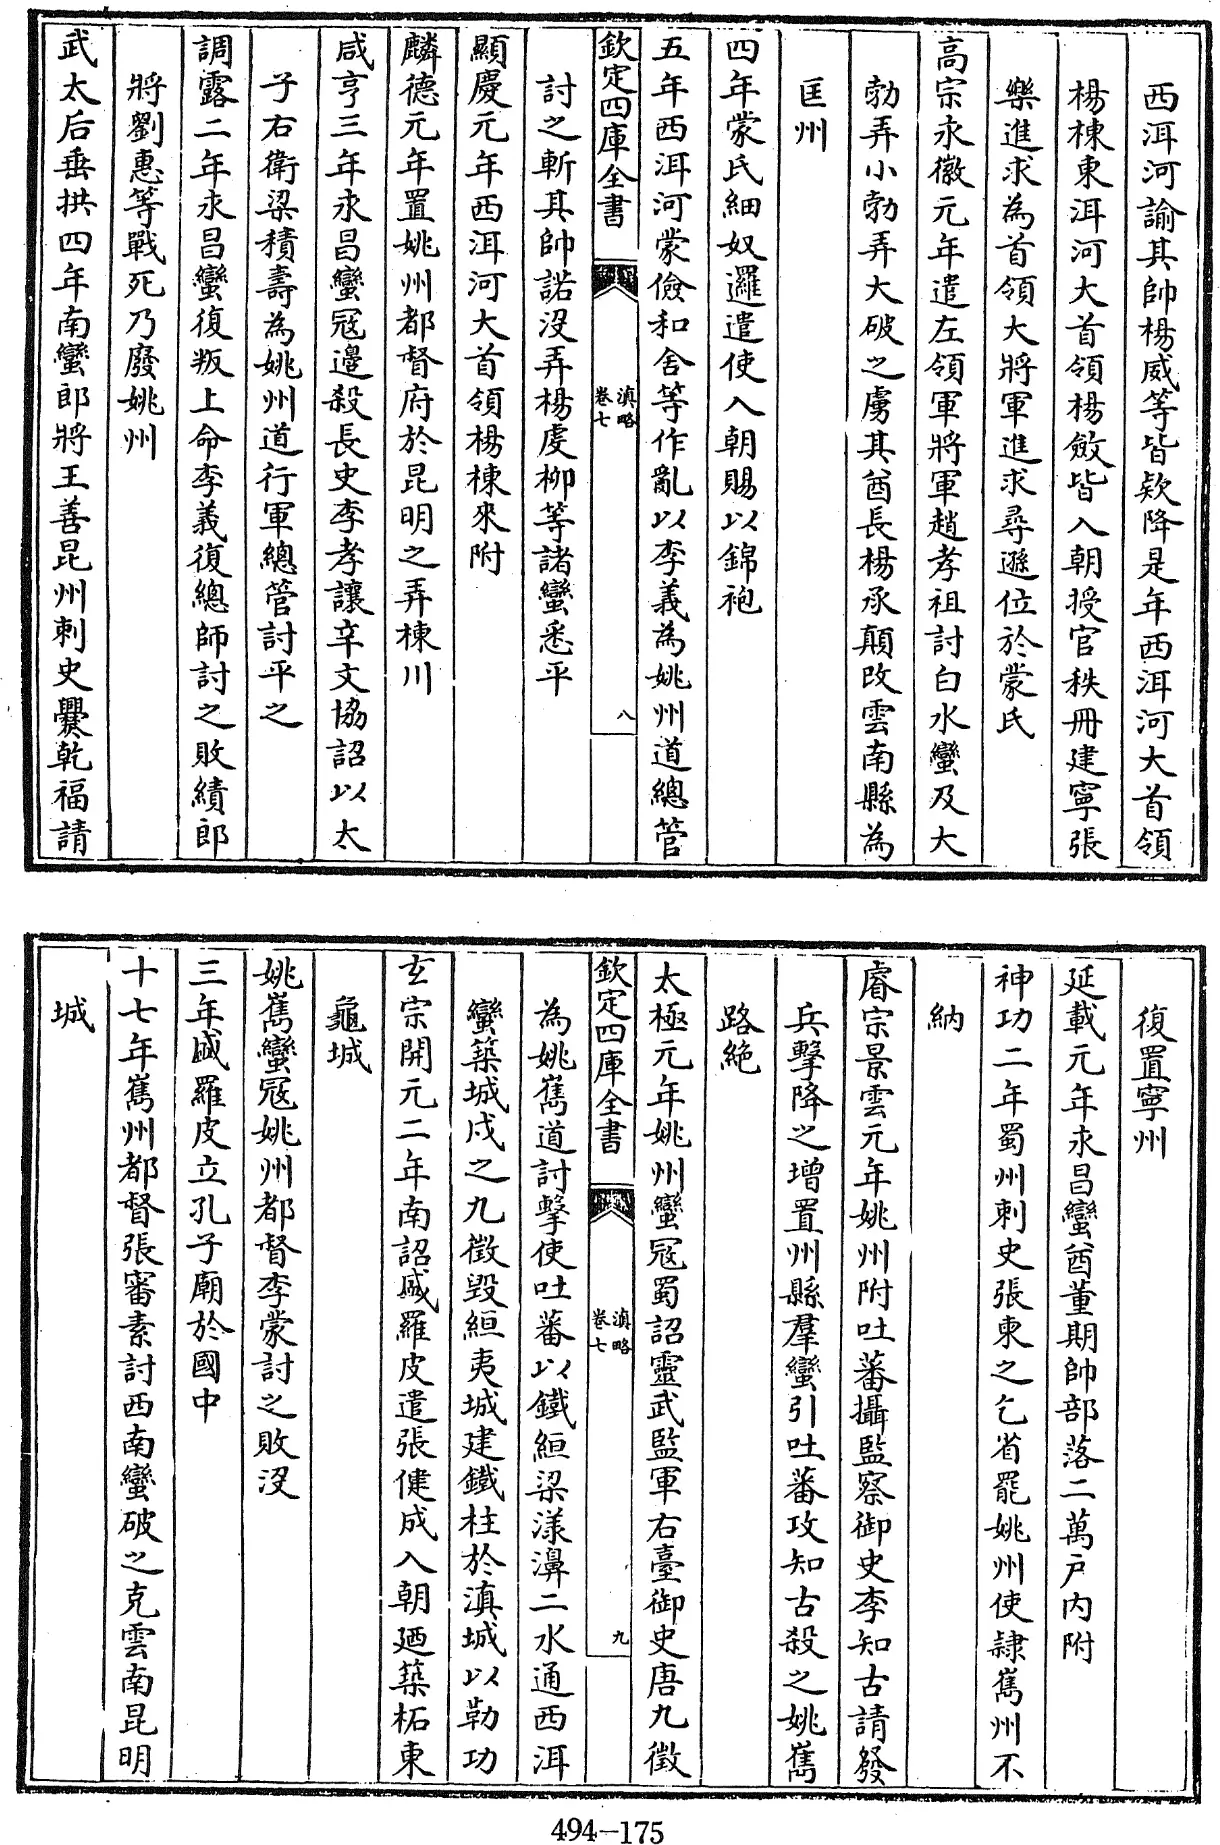 西洱河諭其帥楊威等皆欵降是年西洱河大首領
楊棟東洱河大首領楊斂皆入朝授官秩冊建寧張
樂進求為首領大將軍進求尋遜位於蒙氏
高宗永徽元年遣左領軍將軍趙孝祖討白水蠻及大
勃弄小勃弄大破之虜其酋長楊承顛改雲南縣為
匡州
四年蒙氏細奴邏遣使入朝賜以錦袍
五年西洱河蒙儉和舍等作亂以李義為姚州道總管
欽定四庫全書
滇略
卷七
八
討之斬其帥諾沒弄楊虔柳等諸蠻悉平
顯慶元年西洱河大首領楊棟來附
麟德元年置姚州都督府於昆明之弄棟川
咸亨三年永昌蠻冦邊殺長史李孝讓辛文協詔以太
子右衛梁積壽為姚州道行軍總管討平之
調露二年永昌蠻復叛上命李義復總師討之敗績郎
將劉惠等戰死乃廢姚州
武太后垂拱四年南蠻郎將王善昆州刺史爨乾福請
復置寧州
延載元年永昌蠻酋董期帥部落二萬戶内附
神功二年蜀州刺史張柬之乞省罷姚州使隸巂州不
納
睿宗景雲元年姚州附吐蕃攝監察御史李知古請發
兵擊降之增置州縣羣蠻引吐蕃攻知古殺之姚巂
路絶
太極元年姚州蠻冦蜀詔靈武監軍右臺御史唐九徵
欽定四庫全書
滇略
卷七
九
為姚巂道討擊使吐蕃以鐵絙梁漾濞二水通西洱
蠻築城戍之九徵毀絙夷城建鐵柱於滇城以勒功
玄宗開元二年南詔盛羅皮遣張健成入朝廼築柘東
龜城
姚巂蠻冦姚州都督李蒙討之敗沒
三年盛羅皮立孔子廟於國中
十七年巂州都督張審素討西南蠻破之克雲南昆明
城
494-175